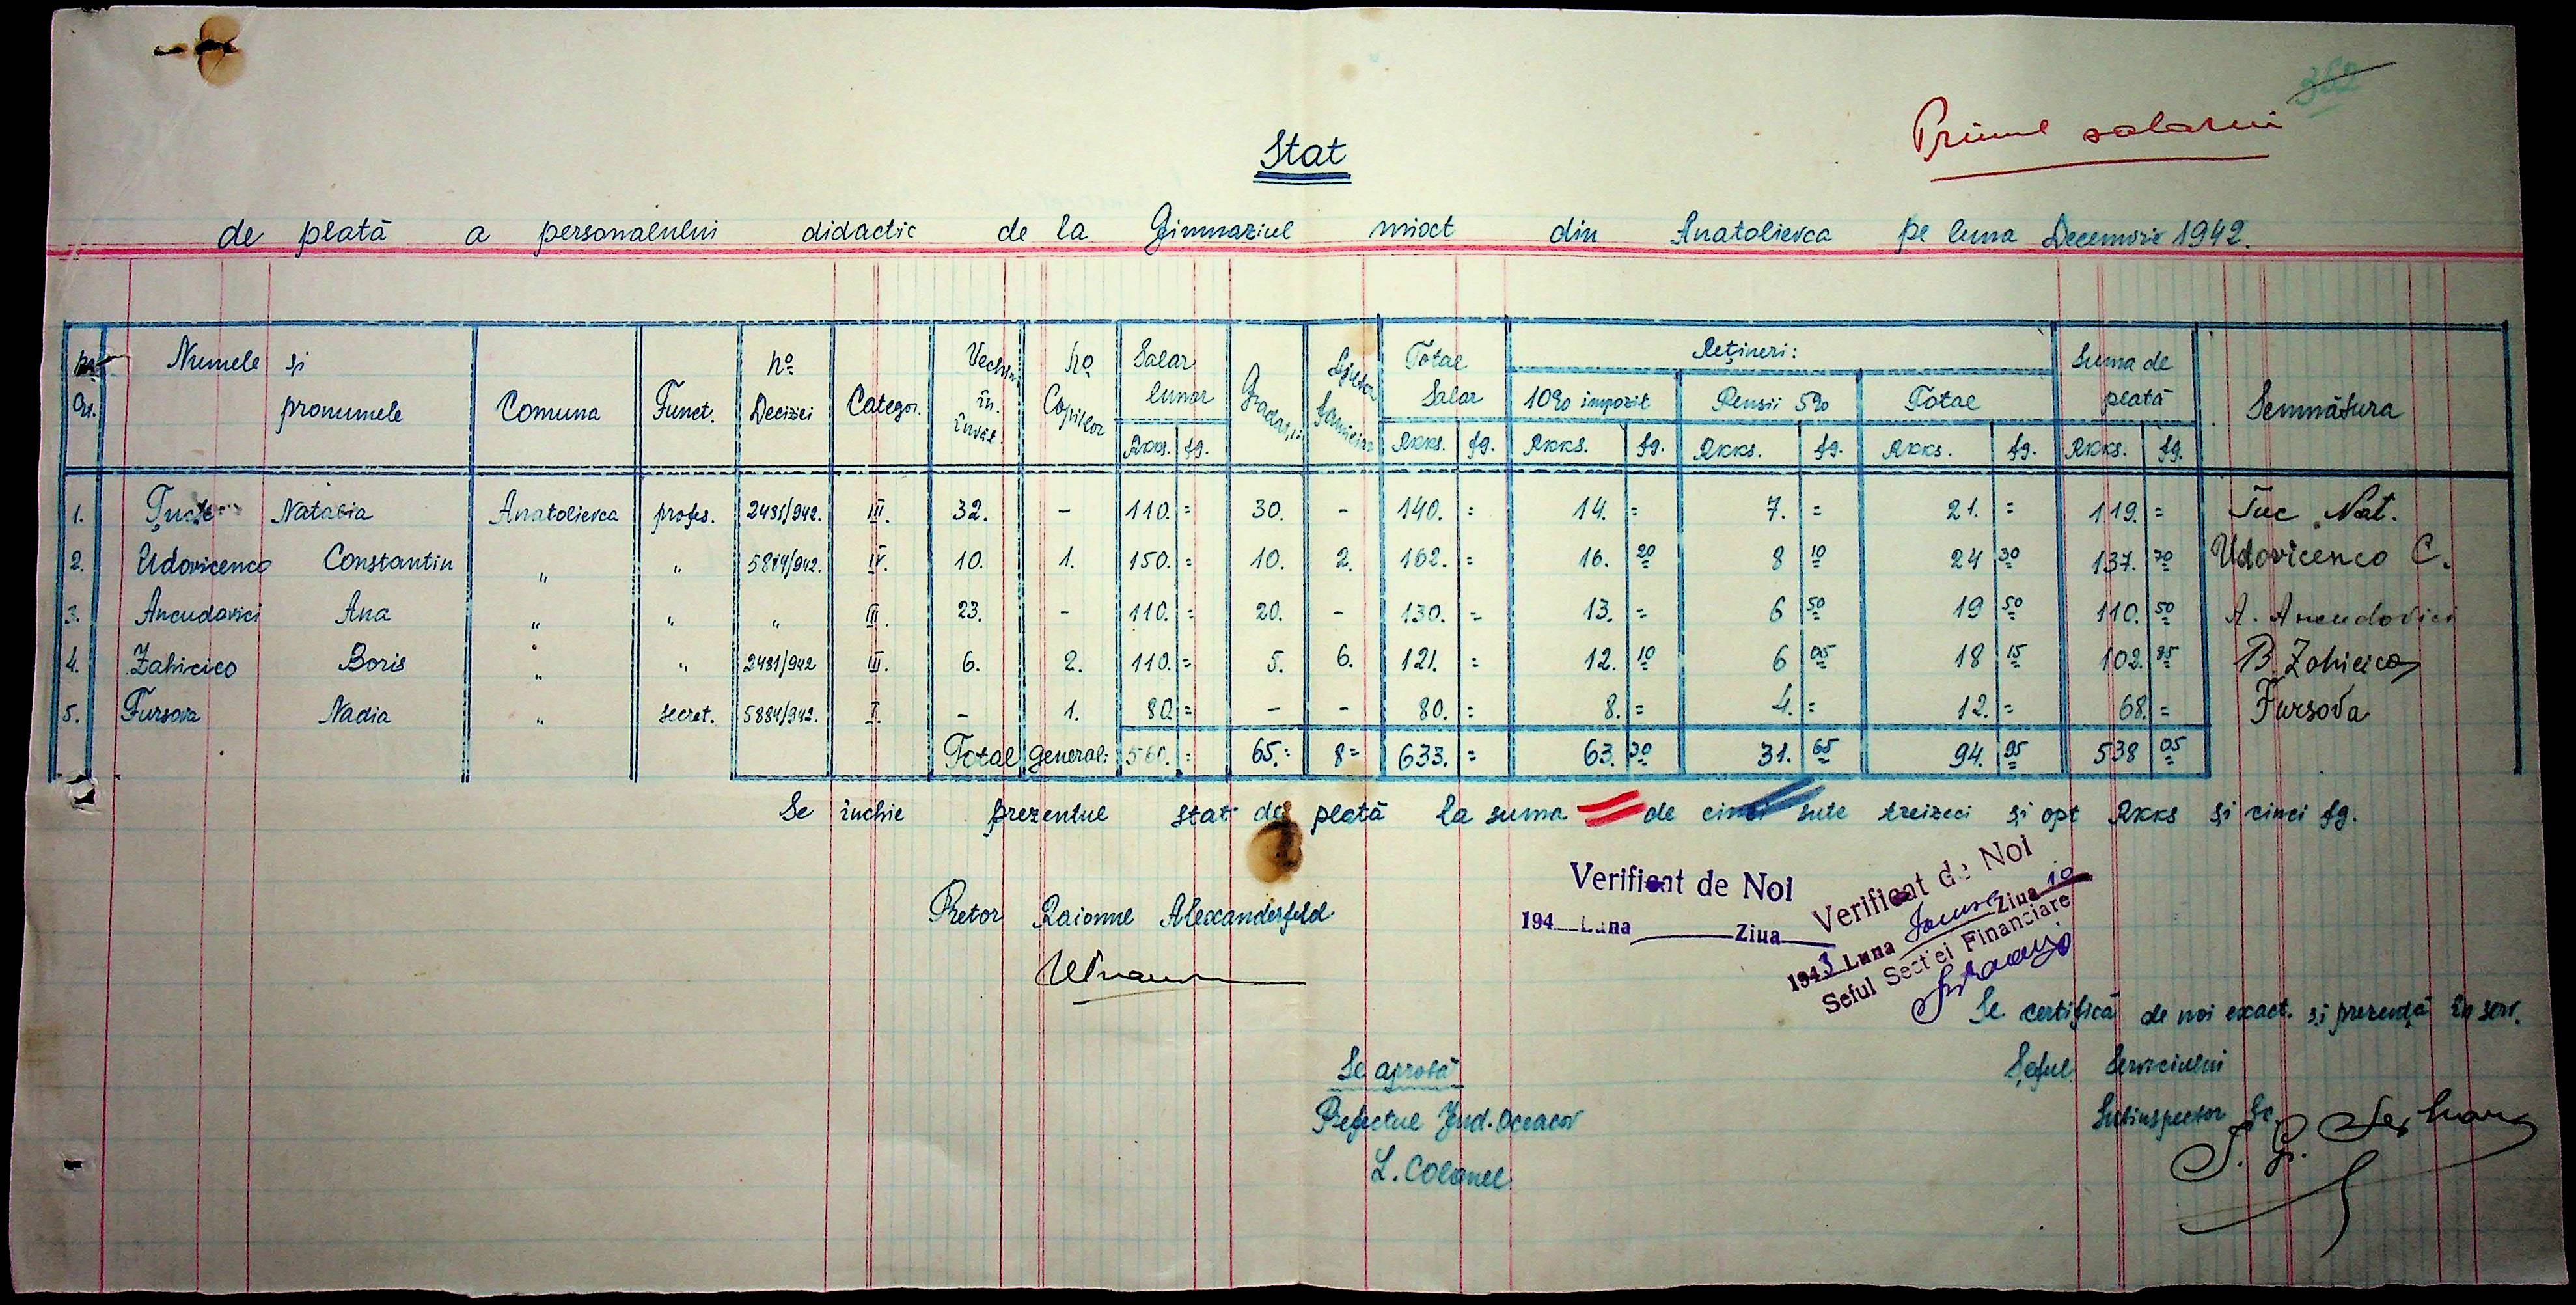 362
Primul salariu
Stat
de plată a personalului didactic de la Gimnaziul mixt din Anatolievca pe luna Decemvrie 1942.
No Crt. Numele și pronumele Comuna Funct. No Deciziei Categor. Vechim în învăț. No Copiilor Salar lunar RKKS. fg. Gradații Ajutor familiar Total Salar RKKS. fg. Rețineri: 10% impozit RKKS. fg. Pensii 5% RKKS. fg. Total RKKS. fg. Suma de plată RKKS. fg. Semnătura
1. Natalia Anatolievca profes. 2431/942. III. 32. - 110. = 30. - 140. = 14. = 7. = 21. = 119. = Țuc Nat.
2. Udovicenco Constantin " " 5879/942. IV. 10. 1. 150. = 10. 2. 162. = 16. 20 8 10 24 30 137. 70 Udovicenco C.
3. Ancudovici Ana " " " III. 23. - 110. = 20. - 130. = 13. = 6 50 19 50 110. 50 A. Ancudovici
4. Zahicico Boris " " 2431/942 III. 6. 2. 110. = 5. 6. 121. = 12. 10 6 05 18 15 102. 85 B. Zahicico
5. Fursova Nadia " secret. 5884/942. I. - 1. 80 = - - 80. = 8. = 4. = 12. = 68. = Fursova
Total general: 560. = 65. = 8 = 633. = 63. 30 31. 65 94. 95 538 05
Se închie prezentul stat de plată la suma de cinci sute treizeci și opt RKKS și cinci fg.
Verificat de Noi
194 Luna Ziua
Verificat de Noi
1943 Luna Ziua 10
Seful Sectiei Financiare
Pretor Raionul Alexanderfeld
Se certifică de noi exact. și prezență în serv.
Șeful Serviciului
Subinspector Șc.
Se aprobă
Prefectul Jud. Oceacov
L. Colonel